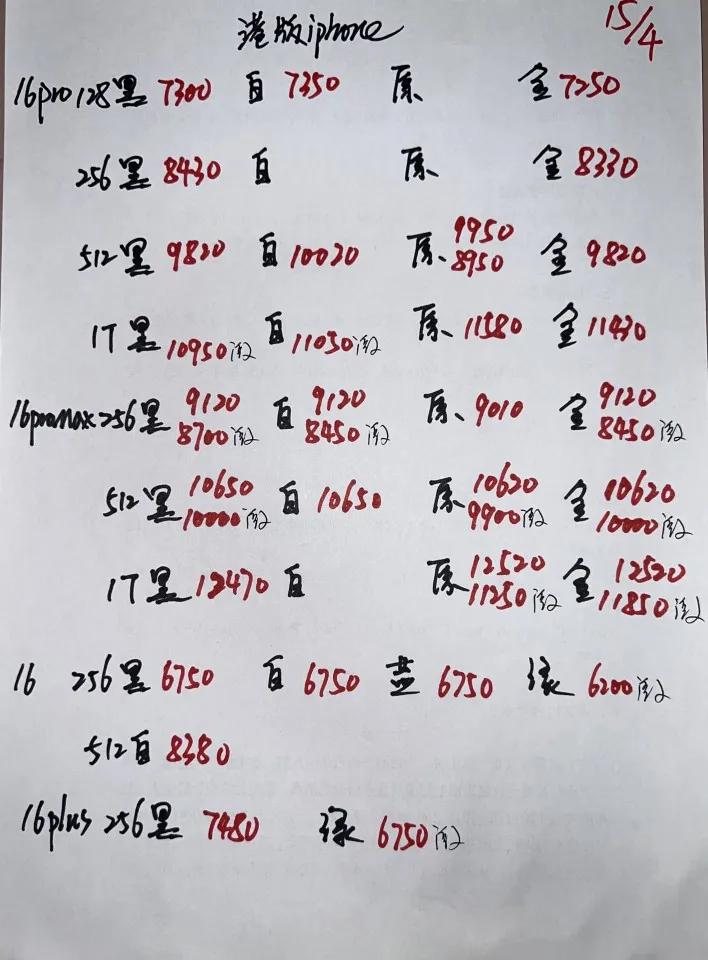 港版iphone 15/4
16pro 128黑 7300 白 7350 原、 金 7250
256黑 8430 白 原、 金 8330
512黑 9820 白 10020 原、 9950 8950 金 9820
1T黑 10950激 白 11050激 原、 11580 金 11430
16promax 256黑 9120 8700激 白 9120 8450激 原、 9010 金 9120 8450激
512黑 10650 10000激 白 10650 原、 10620 9900激 金 10620 10000激
1T黑 12470 白 原、 12520 11250激 金 12520 11850激
16 256黑 6750 白 6750 蓝 6750 绿 6200激
512白 8380
16plus 256黑 7480 绿 6750激